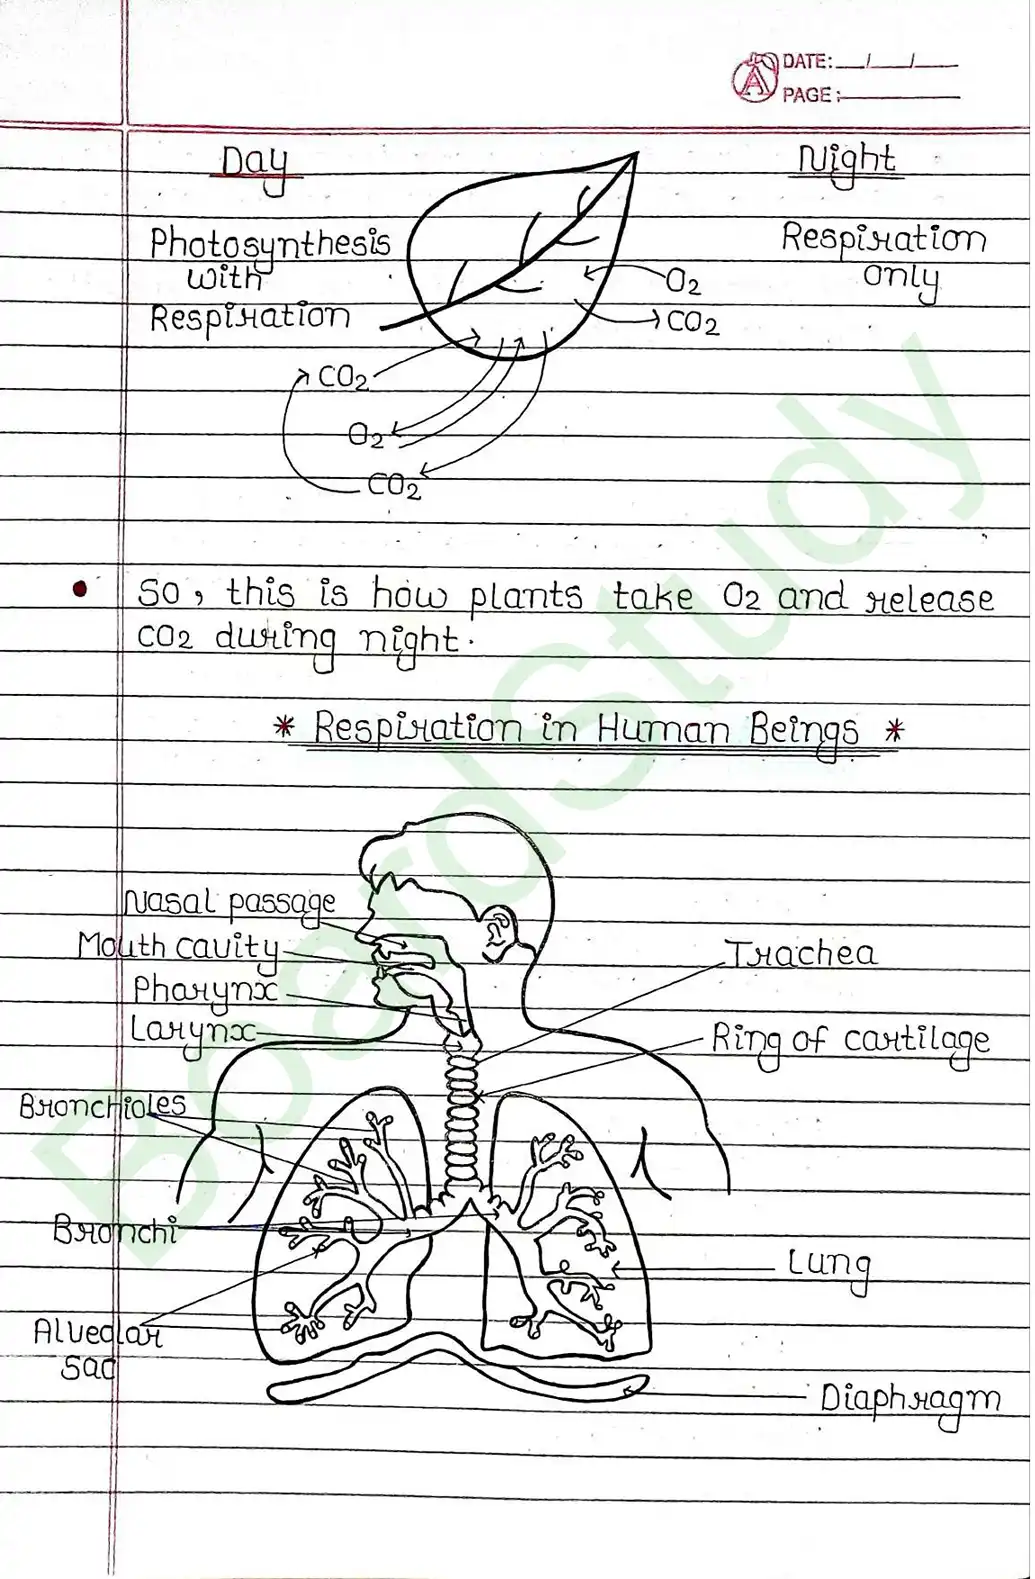 DATE: __/__/__
PAGE:
Day
Night
Photosynthesis
with
Respiration
Respiration
only
O2
CO2
CO2
O2
CO2
So, this is how plants take O2 and release
CO2 during night.
* Respiration in Human Beings *
Nasal passage
Mouth cavity
Pharynx
Larynx
Trachea
Ring of cartilage
Bronchioles
Bronchi
Lung
Alveolar
Sac
Diaphragm
BoardStudy